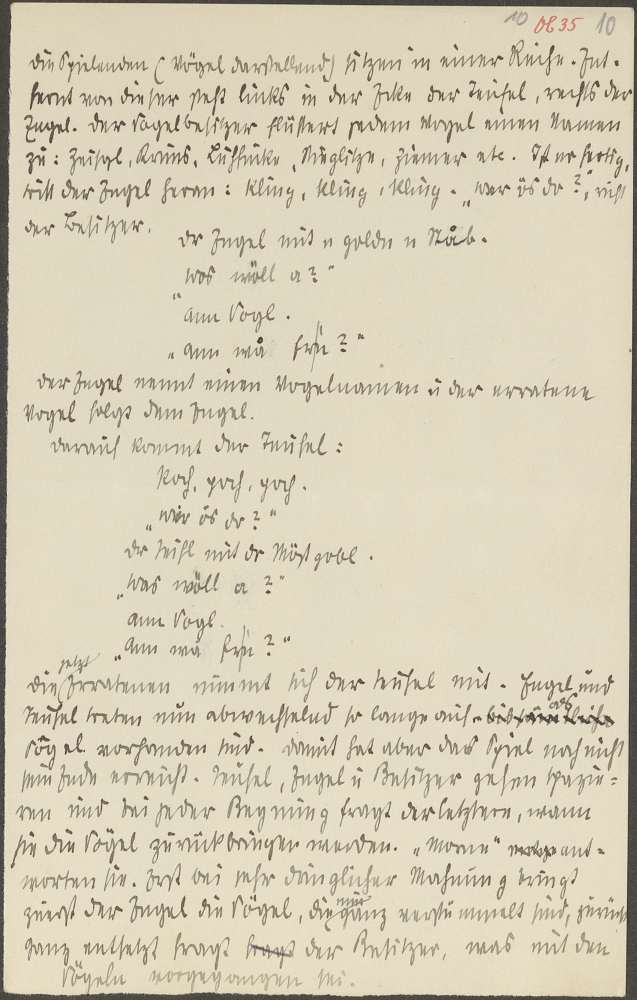 10 OE35 10
die Spielenden (Vögel darstellend) sitzen in einer Reihe. Ent-
fernt von dieser steht links in der Ecke der Teufel, rechts der
Engel. Der Vogelbesitzer flüstert jedem Vogel einen Namen
zu: Zeisgl, Krins, Buchfinke, Stieglitze, Ziemer etc. Ist er fertig,
tritt der Engel heran: kling, kling, kling. "wer ös do?", ruft
der Besitzer.
Dr Engel mit n goldn n Ståb.
"wos wöll a?"
ann Vogl.
"ann wå fryn?"
Der Engel nennt einen Vogelnamen u der erratene
Vogel folgt dem Engel.
Darauf kommt der Teufel:
Poch, poch, poch.
"wår ös do?"
Dr Teifl mit dr Mistgobl.
"was wöll a?"
ann Vogl.
"ann wå fryn?"
Die jetzt Erratenen nimmt sich der Teufel mit. Engel und
Teufel treten nun abwechselnd so lange auf, als
Vögel vorhanden sind. Damit hat aber das Spiel noch nicht
sein Ende erreicht. Teufel, Engel u Besitzer gehen spazie-
ren und bei jeder Begegnung fragt der letztere, wann
sie die Vögel zurückbringen werden. "Morne" ant-
worten sie. Erst bei sehr dringlicher Mahnung bringt
zuerst der Engel die Vögel, die nun ganz verstümmelt sind, zurück
Ganz entsetzt fragt der Besitzer, was mit den
Vögeln vorgegangen sei.